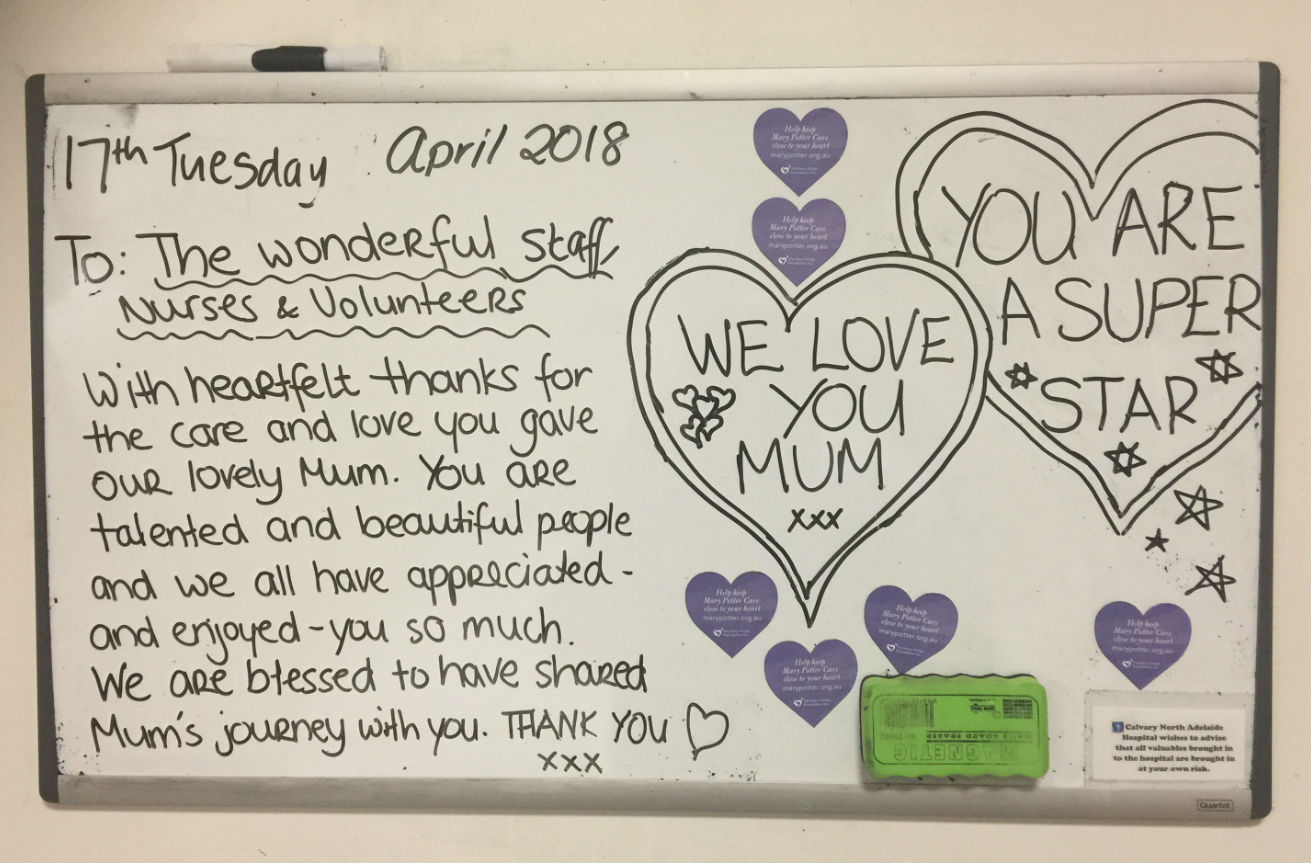 17th Tuesday April 2018
To: The wonderful staff,
Nurses & Volunteers
With heartfelt thanks for
the care and love you gave
our lovely Mum. You are
talented and beautiful people
and we all have appreciated -
and enjoyed - you so much.
We are blessed to have shared
Mum's journey with you. THANK YOU
xxx
WE LOVE
YOU
MUM
xxx
YOU ARE
A SUPER
STAR
Help keep
Mary Potter Care
close to your heart
marypotter.org.au
Help keep
Mary Potter Care
close to your heart
marypotter.org.au
Help keep
Mary Potter Care
close to your heart
marypotter.org.au
Help keep
Mary Potter Care
close to your heart
marypotter.org.au
Help keep
Mary Potter Care
close to your heart
marypotter.org.au
Help keep
Mary Potter Care
close to your heart
marypotter.org.au
MAGNETIC
WHITE BOARD ERASER
Calvary North Adelaide
Hospital wishes to advise
that all valuables brought in
to the hospital are brought in
at your own risk.
Quartet